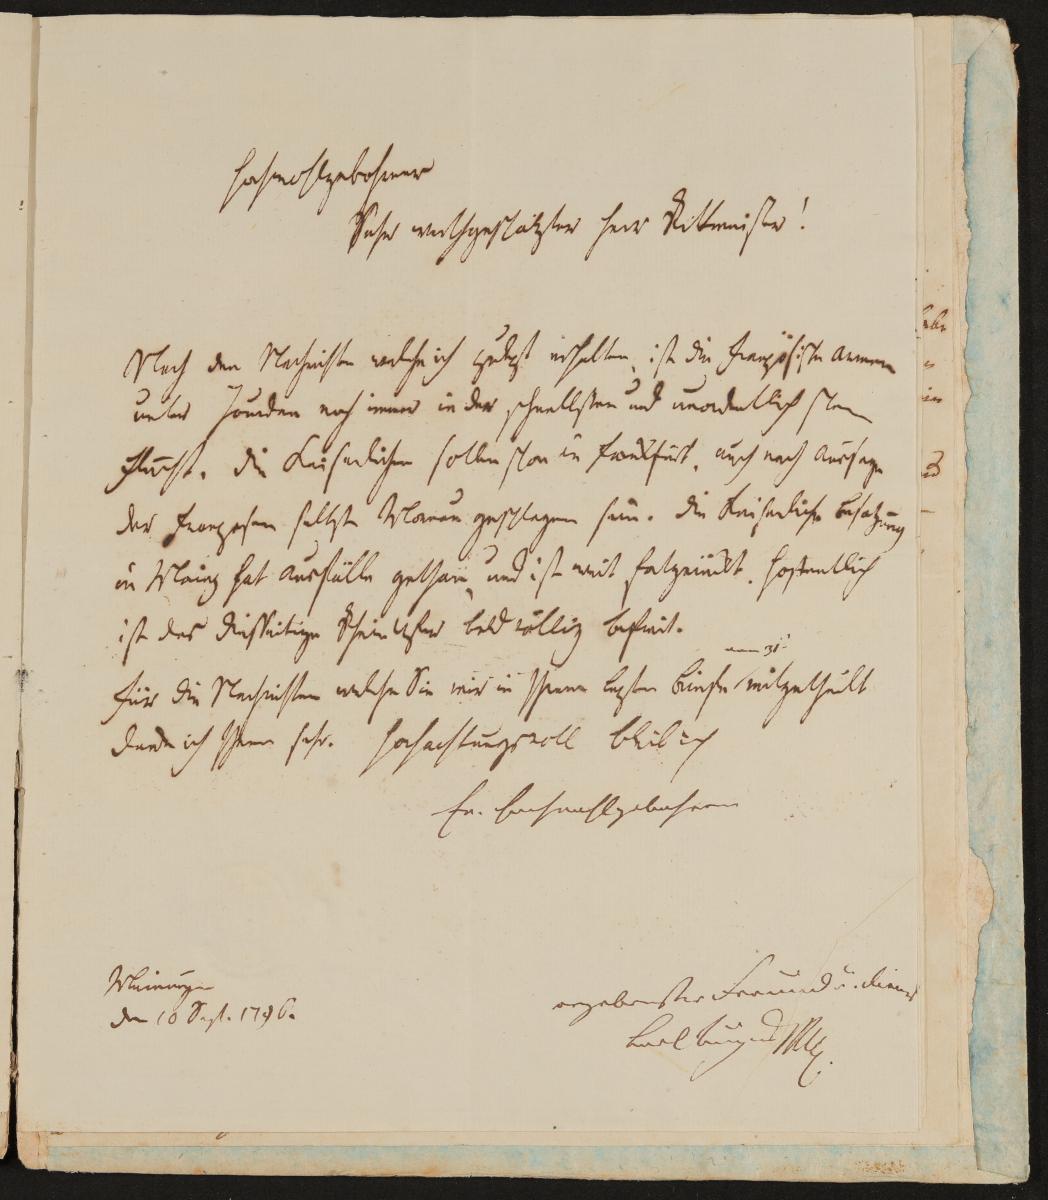 Hochwohlgebohrner
Sehr werthgeschätzter Herr Rittmeister!
Nach den Nachrichten welche ich zuletzt erhalten, ist die französische Armee
unter Jourdan noch immer in der schnellsten und unordentlichsten
Flucht. Die Kaiserlichen sollen schon in Frankfurt, auch nach Aussage
der Franzosen selbst Moreau geschlagen sein. Die Kaiserliche Besatzung
in Mainz hat Ausfälle gethan, und ist weit vorgerückt. Hoffentlich
ist das diesseitige Rhein Ufer bald völlig befreit.
Für die Nachrichten welche Sie mir in Ihrem lezten Briefe vom 31t mitgetheilt
danke ich Ihnen sehr. Hochachtungsvoll bleib ich
Ew. Hochwohlgebohren
Meiningen
den 10 Sept. 1796.
ergebenster Freund u. Diener
Carl